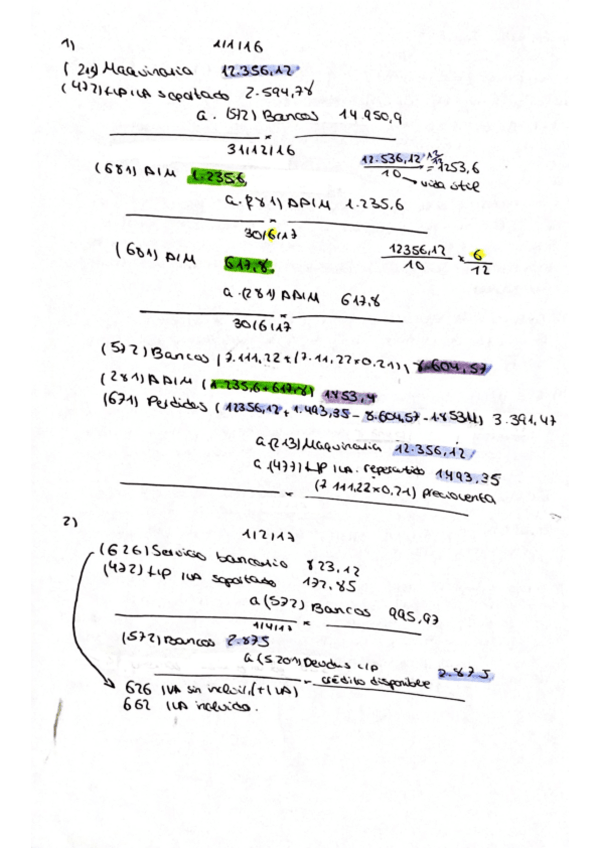 1) 1/1/16
(213) Maquinaria 12.356,12
(472) HP IVA soportado 2.594,78
a. (572) Bancos 14.950,9
31/12/16
12.536,12 / 10 = 1253,6
vida útil
(681) AIM 1.235,6
a. (281) AAIM 1.235,6
30/6/17
(681) AIM 617,8
12356,12 / 10 x 6 / 12
a (281) AAIM 617,8
30/6/17
(572) Bancos (7.111,22 + (7.11,22x0,21)) 8.604,57
(281) AAIM (1.235,6+617,8) 1853,4
(671) Perdidas (12356,12 + 1.493,35 - 8.604,57 - 1853,4) 3.391,47
a (213) Maquinaria 12.356,12
a (477) HP IVA. repercutido 1493,35
(7.111,22x0,21) precio venta
2)
1/2/17
(626) Servicio bancario 823,12
(472) HP IVA soportado 172,85
a (572) Bancos 995,97
1/4/17
(572) Bancos 2.875
a (5201) Deudas c/p
crédito disponible 2.875
626 IVA sin incluir (+IVA)
662 IVA incluido.